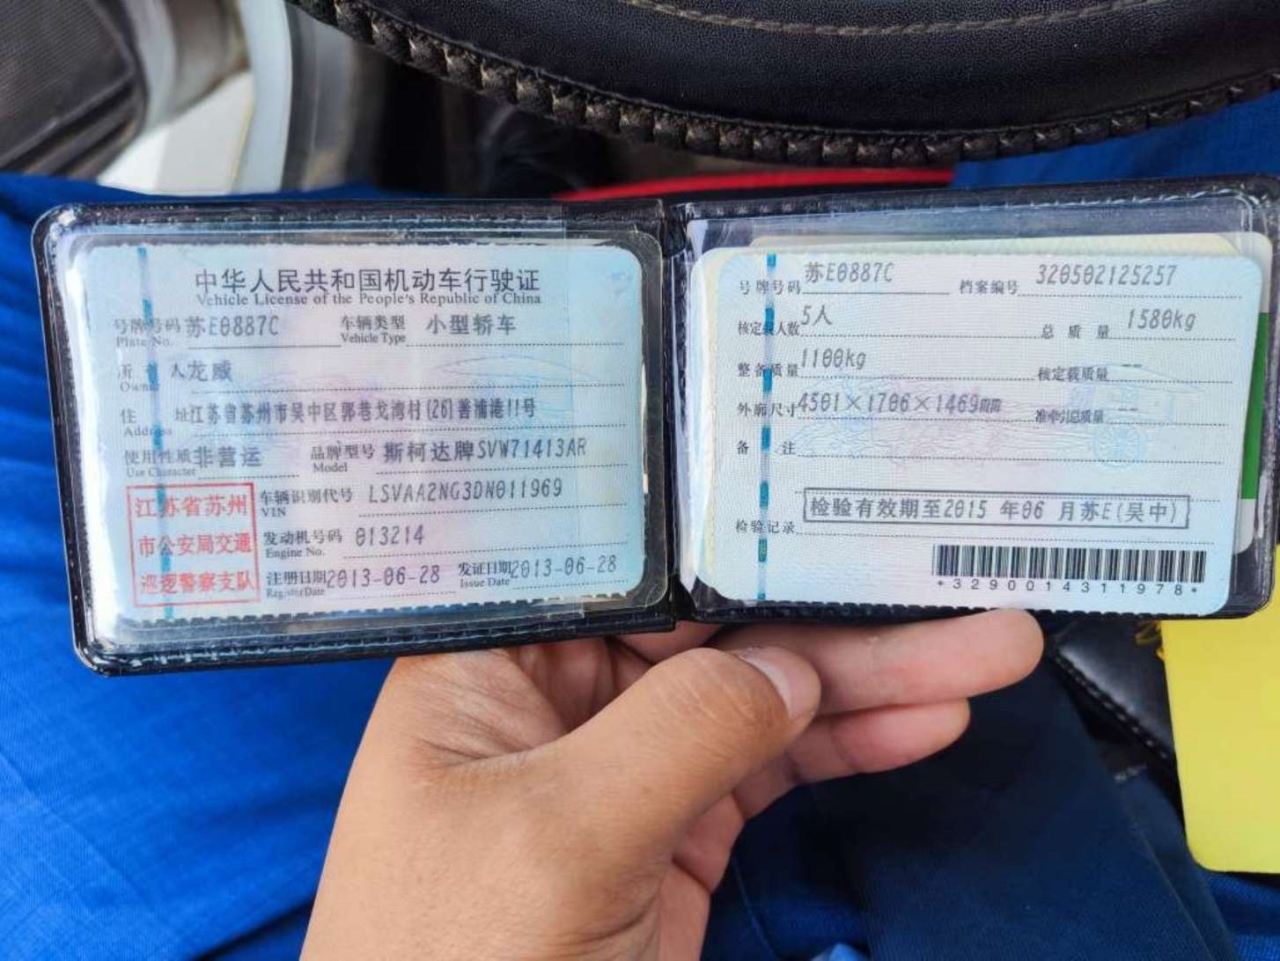 中华人民共和国机动车行驶证
Vehicle License of the People's Republic of China
号牌号码 苏E0887C 车辆类型 小型轿车
Plate No. Vehicle Type
所 有 人 龙威
Owner
住 址 江苏省苏州市吴中区郭巷戈湾村(26)善浦港11号
Address
使用性质 非营运 品牌型号 斯柯达牌SVW71413AR
Use Character Model
江苏省苏州
市公安局交通
巡逻警察支队
车辆识别代号 LSVAA2NG3DN011969
VIN
发动机号码 013214
Engine No.
注册日期 2013-06-28 发证日期 2013-06-28
Register Date Issue Date
号牌号码 苏E0887C 档案编号 320502125257
核定载人数 5人 总 质 量 1580kg
整备质量 1100kg 核定载质量 --
外廓尺寸 4501×1706×1469mm 准牵引总质量 --
备 注
检验记录 检验有效期至2015 年06 月苏E(吴中)
*3290014311978*